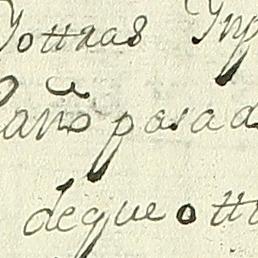 ottras Inp
año pasad
deque ott